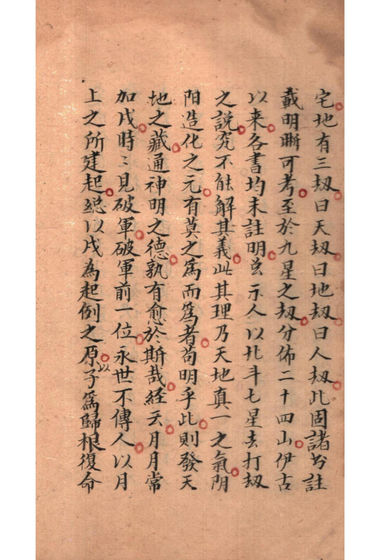 宅地有三刼曰天刼曰地刼曰人刼此固諸书註
載明晰可考至於九星之刼分佈二十四山伊古
以来各書均未註明玄示人以北斗七星去打刼
之說究不能解其義此其理乃天地真一之氣阴
阳造化之元有莫之為而為者苟明乎此則發天
地之藏通神明之德孰有愈於斯哉経云月月常
加戌時〻見破軍破軍前一位永世不傳人以月
上之所建起総以戌為起例之原以子為歸根復命